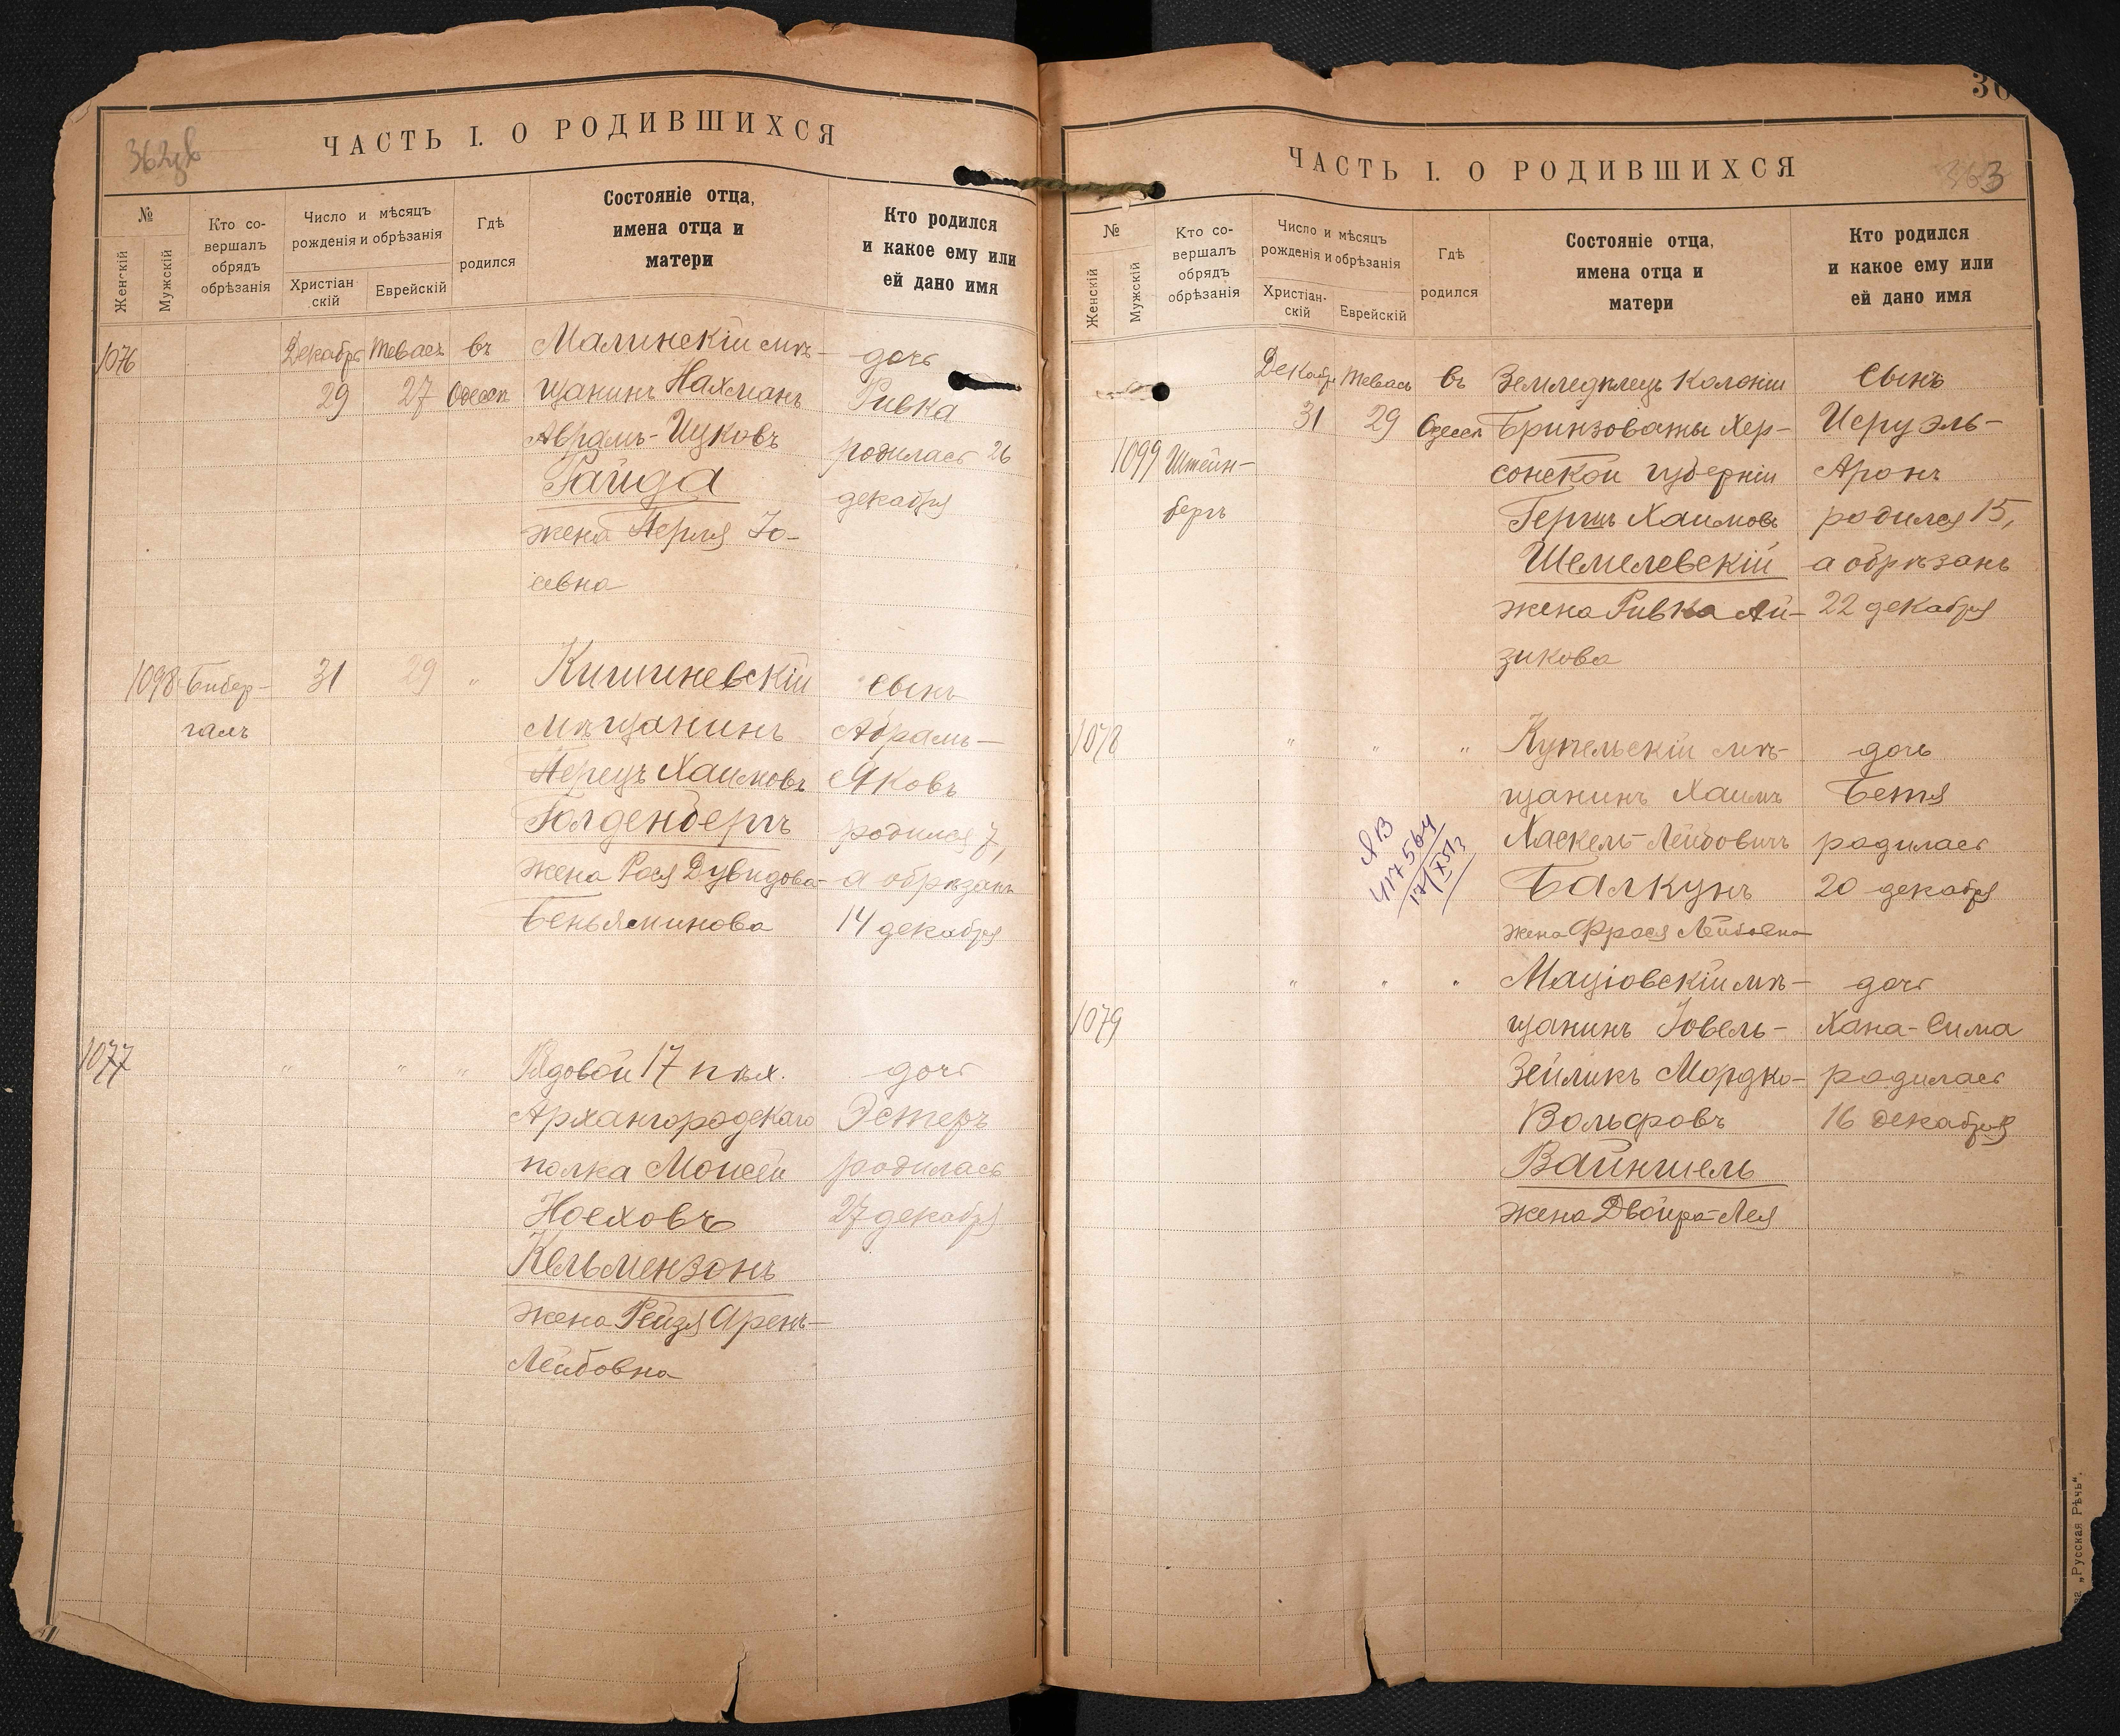 ЧАСТЬ I. О РОДИВШИХСЯ
№
Женскій
Мужскій
Кто со-
вершалъ
обрядъ
обрѣзанія
Число и мѣсяцъ
рожденія и обрѣзанія
Христіан
скій
Еврейскій
Гдѣ
родился
Состояніе отца,
имена отца и
матери
Кто родился
и какое ему или
ей дано имя
1076
Декабрь Тевасъ въ
29 27 Одессѣ
Малинскій мѣ-
щанинъ Нахманъ
Абрамъ-Ицковъ
Гайда
жена Перля Іо-
севна
дочь
Ривка
родилась 26
декабря
1098 Бибер-
галъ
31 29 "
Кишиневскій
мѣщанинъ
Перецъ Хаимовъ
Голденбергъ
жена Рося Дувидова-
Беньяминова
сынъ
Абрамъ-
Яковъ
родился 7,
а обрѣзанъ
14 декабря
1077
" " "
Рядовой 17 пѣх.
Архангородскаго
полка Моисей
Ноеховъ
Кельмензонъ
жена Рейзя Аронъ-
Лейбовна
дочь
Эстеръ
родилась
27 декабря
ЧАСТЬ I. О РОДИВШИХСЯ
363
№
Женскій
Мужскій
Кто со-
вершалъ
обрядъ
обрѣзанія
Число и мѣсяцъ
рожденія и обрѣзанія
Христіан-
скій
Еврейскій
Гдѣ
родился
Состояніе отца,
имена отца и
матери
Кто родился
и какое ему или
ей дано имя
Декабрь Тевасъ въ
31 29 Одессѣ
1099 Штейн-
бергъ
Земледѣлецъ колоніи
Бринзоваты Хер-
сонской губерніи
Гершъ Хаимовъ
Шемелевскій
жена Ривка Ай-
зикова
сынъ
Исруэль-
Аронъ
родился 15,
а обрѣзанъ
22 декабря
1078
" " "
Купельскій мѣ-
щанинъ Хаимъ
Хаскель-Лейбовичъ
Балкунъ
жена Фрося Лейбовна
дочь
Бетя
родилась
20 декабря
ЯВ
417564
1079
" " "
Маціовскій мѣ-
щанинъ Іовель-
Зейликъ Мордко-
Вольфовъ
Вайншель
жена Двойра-Лея
дочь
Хана-Сима
родилась
16 декабря
„Русская Рѣчь“.